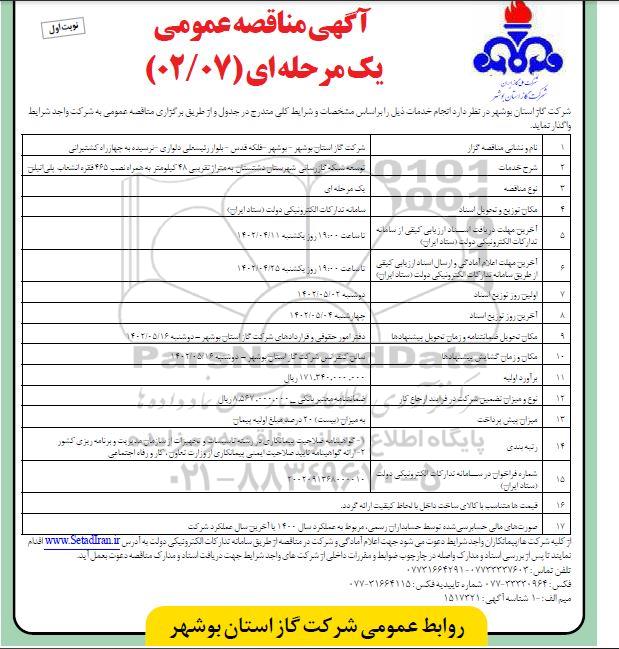 نوبت اول
آگهی مناقصه عمومی
یک مرحله ای (۰۲/۰۷)
شرکت ملی گاز ایران
شرکت گاز استان بوشهر
شرکت گاز استان بوشهر در نظر دارد انجام خدمات ذیل را براساس مشخصات و شرایط کلی مندرج در جدول و از طریق برگزاری مناقصه عمومی به شرکت واجد شرایط
واگذار نماید.
۱ نام و نشانی مناقصه گزار شرکت گاز استان بوشهر - بوشهر - فلکه قدس - بلوار رئیسعلی دلواری - نرسیده به چهارراه کشتیرانی
۲ شرح خدمات توسعه شبکه گازرسانی شهرستان دشتستان به متراژ تقریبی ۴۸ کیلومتر به همراه نصب ۴۶۵ فقره انشعاب پلی اتیلن
۳ نوع مناقصه یک مرحله ای
۴ مکان توزیع و تحویل اسناد سامانه تدارکات الکترونیکی دولت (ستاد ایران)
۵ آخرین مهلت دریافت اسناد ارزیابی کیفی از سامانه
تدارکات الکترونیکی دولت (ستاد ایران) تا ساعت ۱۹:۰۰ روز یکشنبه ۱۴۰۲/۰۴/۱۱
۶ آخرین مهلت اعلام آمادگی و ارسال اسناد ارزیابی کیفی
از طریق سامانه تدارکات الکترونیکی دولت (ستاد ایران) تا ساعت ۱۹:۰۰ روز یکشنبه ۱۴۰۲/۰۴/۲۵
۷ اولین روز توزیع اسناد دوشنبه ۱۴۰۲/۰۵/۰۲
۸ آخرین روز توزیع اسناد چهارشنبه ۱۴۰۲/۰۵/۰۴
۹ مکان تحویل ضمانتنامه و زمان تحویل پیشنهادها دفتر امور حقوقی و قراردادهای شرکت گاز استان بوشهر – دوشنبه ۱۴۰۲/۰۵/۱۶
۱۰ مکان و زمان گشایش پیشنهادها سالن کنفرانس شرکت گاز استان بوشهر – دوشنبه ۱۴۰۲/۰۵/۱۶
۱۱ برآورد اولیه ۱۷۱,۳۴۰,۰۰۰,۰۰۰ ریال
۱۲ نوع و میزان تضمین شرکت در فرایند ارجاع کار ضمانتنامه معتبر بانکی – ۸,۵۶۷,۰۰۰,۰۰۰ ریال
۱۳ میزان پیش پرداخت به میزان (بیست) ۲۰ درصد مبلغ اولیه پیمان
۱۴ رتبه بندی ۱- گواهینامه صلاحیت پیمانکاری در رشته تاسیسات و تجهیزات از سازمان مدیریت و برنامه ریزی کشور
۲- ارائه گواهینامه تایید صلاحیت ایمنی پیمانکاری از وزارت تعاون، کار و رفاه اجتماعی
۱۵ شماره فراخوان در سامانه تدارکات الکترونیکی دولت
(ستاد ایران) ۲۰۰۲۰۹۱۳۶۸۰۰۰۰۱۰
۱۶ قیمت ها متناسب با کالای ساخت داخل با لحاظ کیفیت ارائه گردد.
۱۷ صورت‌های مالی حسابرسی شده توسط حسابداران رسمی، مربوط به عملکرد سال ۱۴۰۰ یا آخرین سال عملکرد شرکت
از کلیه شرکت ها/پیمانکاران واجد شرایط دعوت می شود جهت اعلام آمادگی و شرکت در مناقصه از طریق سامانه تدارکات الکترونیکی دولت به آدرس www.SetadIran.ir اقدام
نمایند تا پس از بررسی اسناد و مدارک واصله در چارچوب ضوابط و مقررات داخلی از شرکت های واجد شرایط جهت دریافت اسناد و مدارک مناقصه دعوت بعمل آید.
تلفن تماس: ۰۷۷۳۳۳۳۷۶۰۳-۰۷۷۳۱۶۶۴۲۹۱
فکس: ۳۳۳۳۰۹۶۴-۰۷۷ شماره تاییدیه فکس: ۳۱۶۶۴۱۱۵-۰۷۷
میم الف: ۱۰- شناسه آگهی: ۱۵۱۷۳۲۱
روابط عمومی شرکت گاز استان بوشهر
ParsNamadData
پایگاه اطلاع رسانی
۰۲۱-۸۸۳۴۹۶۷۰-۵